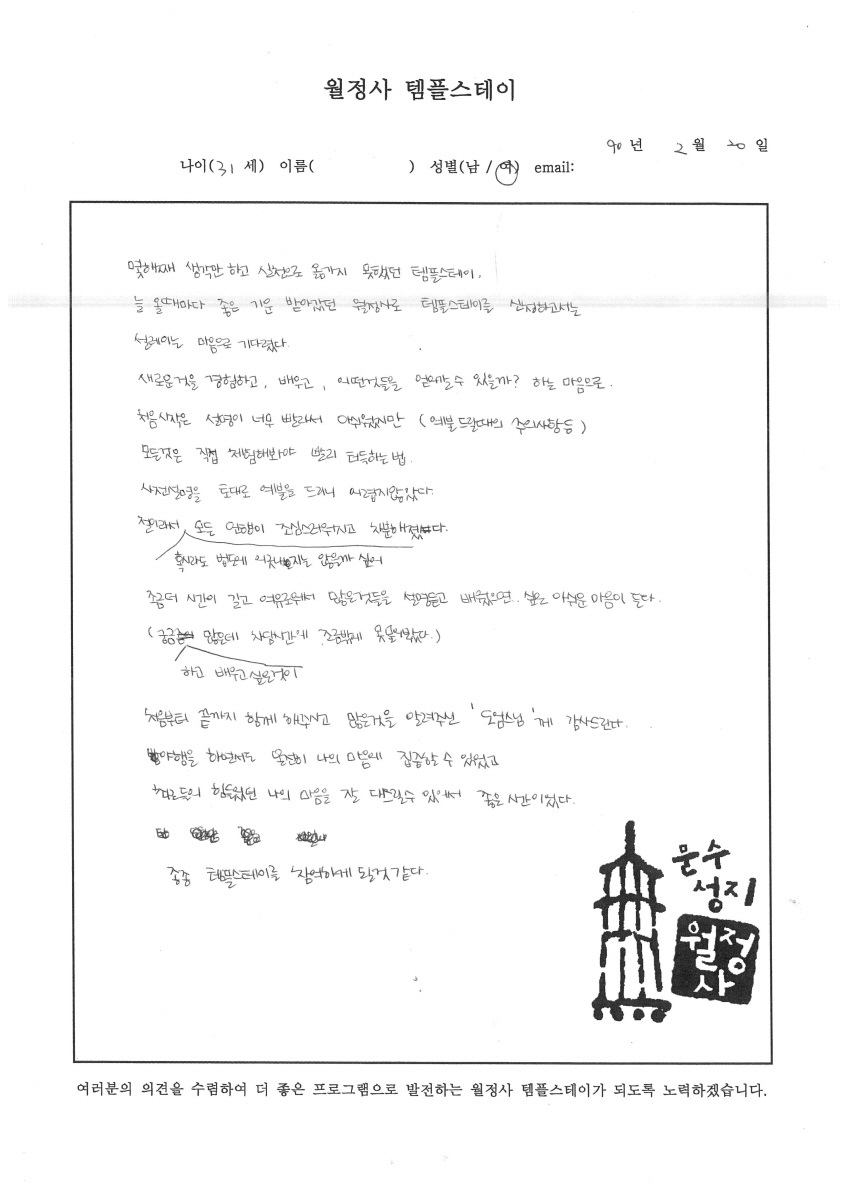 월정사 템플스테이
90 년 2 월 20 일
나이(31 세) 이름( ) 성별(남 / 여) email:
몇해째 생각만 하고 실천으로 옮기지 못했던 템플스테이.
늘 올때마다 좋은 기운 받아갔던 월정사로 템플스테이를 신청하고서는
설레이는 마음으로 기다렸다.
새로운것을 경험하고, 배우고, 어떤것들을 얻어갈수 있을까? 하는 마음으로.
처음시작은 설명이 너무 빨라서 아쉬웠지만 (예불드릴때의 주의사항등)
모든것은 직접 체험해봐야 빨리 터득하는법.
사전설명을 토대로 예불을 드리니 어렵지않았다.
절이라서 모든 언행이 조심스러워지고 차분해졌다.
혹시라도 법도에 어긋나지는 않을까 싶어
조금더 시간이 길고 여유로워서 많은것들을 설명듣고 배웠으면.. 싶은 아쉬운 마음이 든다.
(궁금 많은데 차담시간에 조금밖에 못물어봤다.)
하고 배우고싶은것이
처음부터 끝까지 함께 해주시고 많은것을 알려주신 '도엄스님'께 감사드린다.
야행을 하면서도 온전히 나의 마음에 집중할 수 있었고
힘들었던 나의 마음을 잘 다스릴수 있어서 좋은 시간이었다.
종종 템플스테이를 참여하게 될것같다.
문수
성지
월정
사
여러분의 의견을 수렴하여 더 좋은 프로그램으로 발전하는 월정사 템플스테이가 되도록 노력하겠습니다.